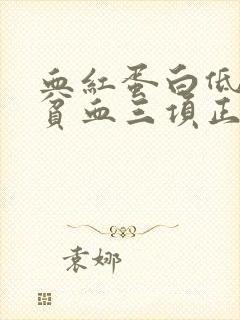 血红蛋白低
贫血三项正
袁娜